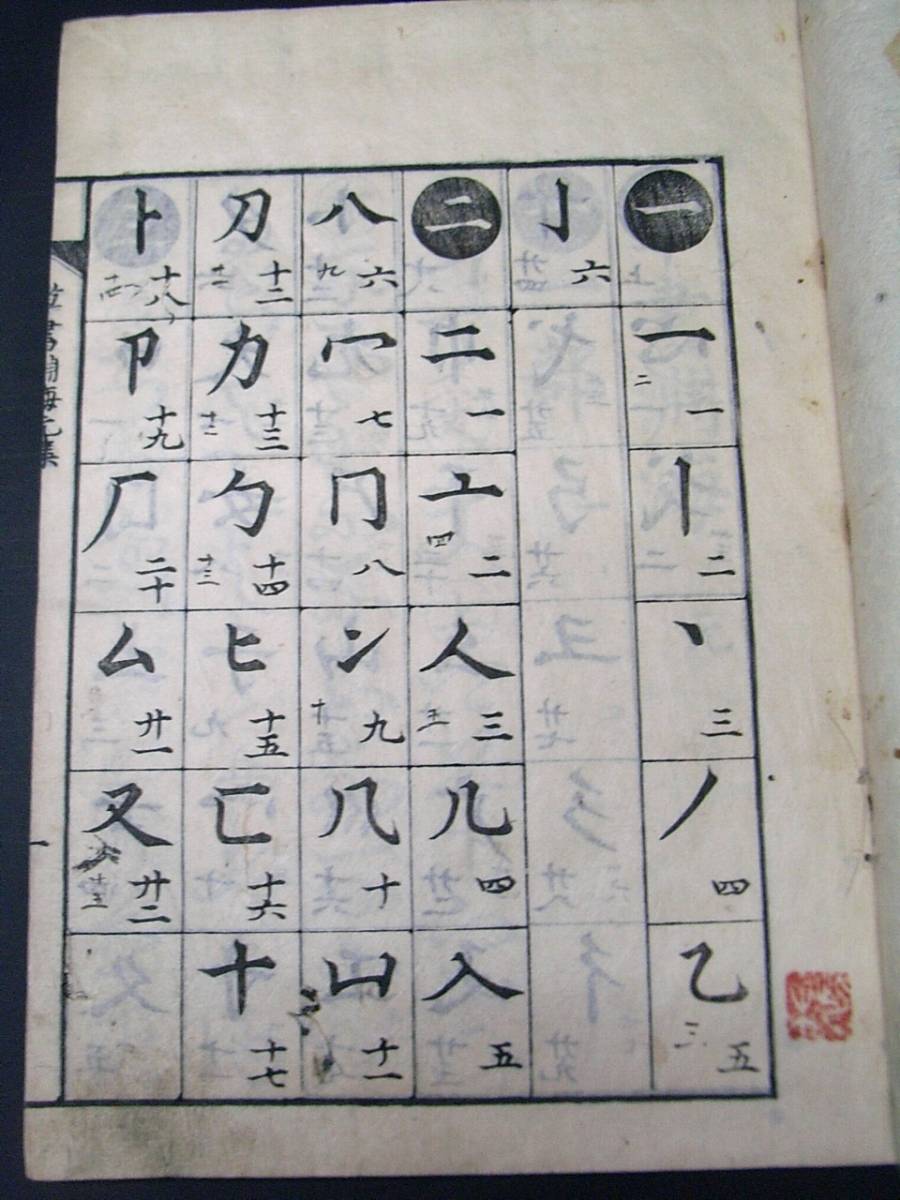 一
一 一 二
丨 二
丶 三
丿 四
乙 五 三
亅 六
二
二 一
亠 二 四
人 三 五
儿 四
入 五
八 六 九
冖 七
冂 八
冫 九 十
几 十
凵 十一
刀 十二 十一
力 十三 十二
勹 十四 十三
匕 十五
匚 十六
十 十七
卜 十八
卩 十九
厂 二十
厶 廿一
又 廿二
一